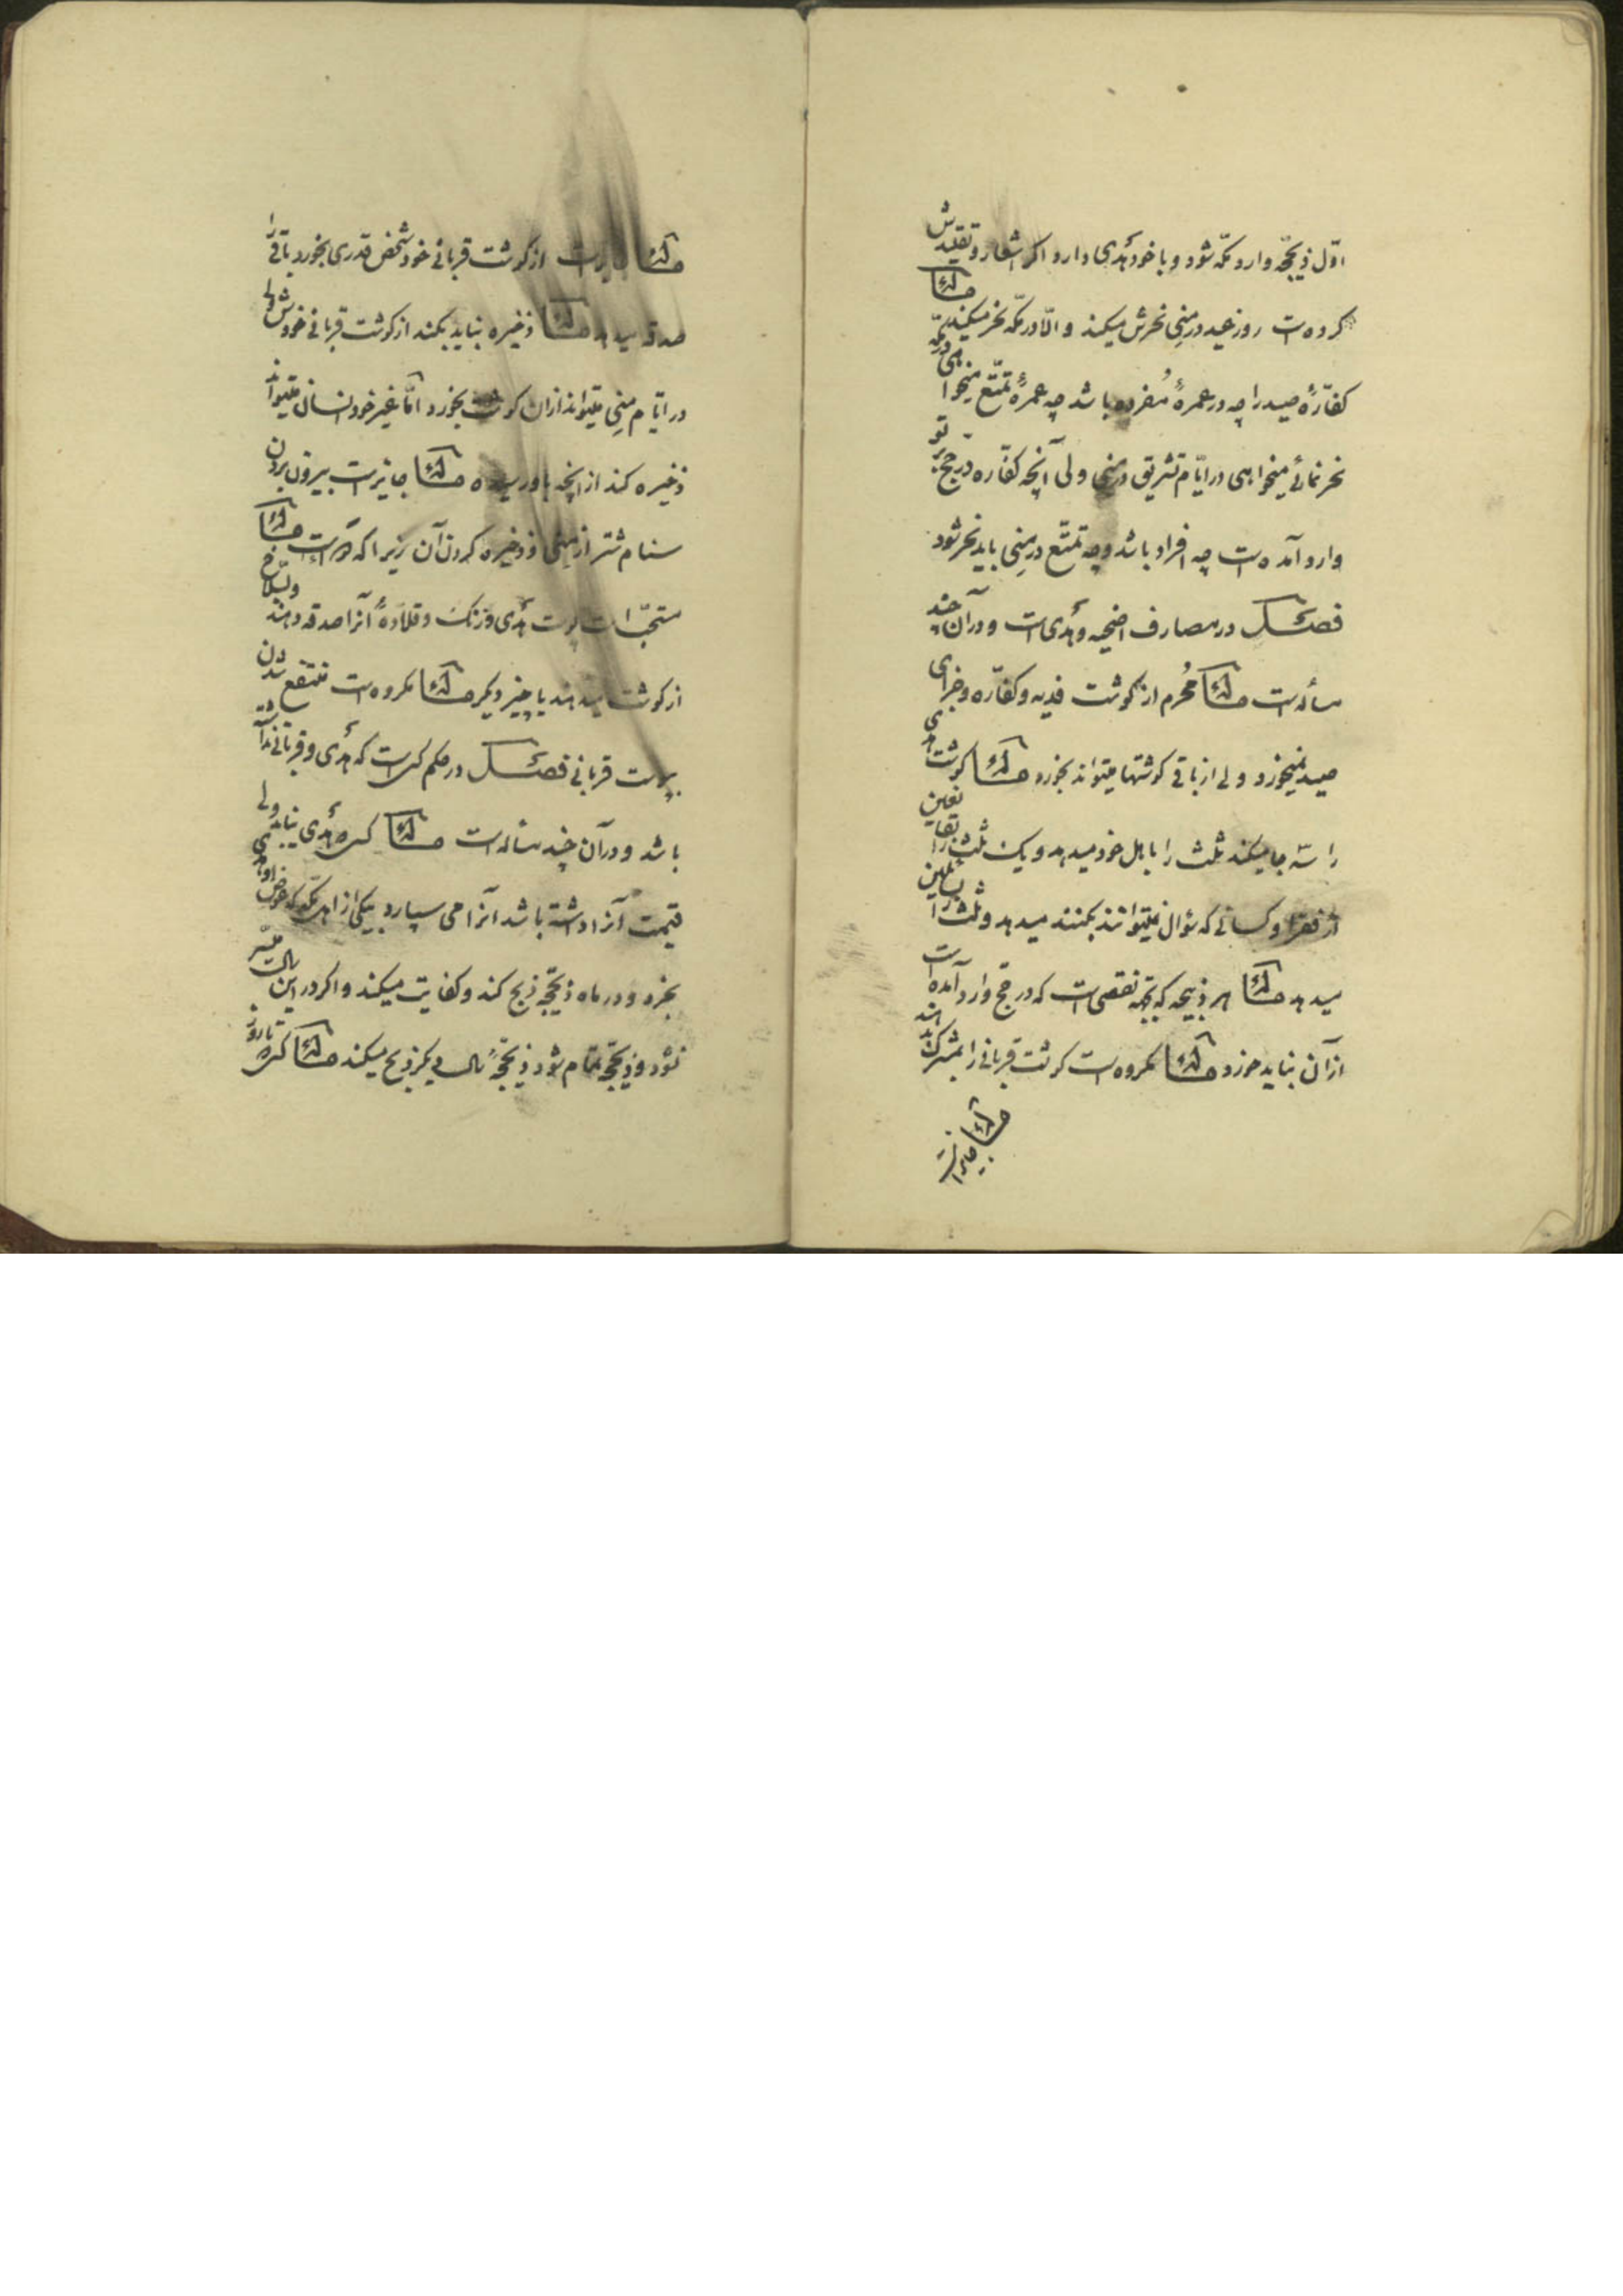 اوّل ذیحجّه وارد مکّه شود و با خود هَدی دارد اکر اشعار و تقلیدش
کرده است روز عید در منی نحرش میکند و الّا در مکّه نحر میکند مسأله
کفّارهٔ صید را چه در عمرهٔ مُفرده باشد چه عمرهٔ تمتّع میخواهی در مکّه
نحر نمائی میخواهی در ایّام تشریق در منی ولی آنچه کفّاره در حج بر تو
وارد آمده است چه افراد باشد و چه تمتّع در منِی باید نحر شود
فصـل در مصارف اضحیه و هَدی است و در آن چند
مسأله است مسأله مُحرم از کوشت فدیه و کفّاره و جزای
صید نمیخورد ولی از باقی کوشتها میتواند بخورد مسأله کوشت هدی
را سه جا میکند ثلث را باهل خود میدهد و یک ثلث را بقانعین
از فقراء و کسانی که سؤال نمیتوانند بکنند میدهد و ثلث را بسائلین
میدهد مسأله هر ذبیحه که بجهة نقصی است که در حج وارد آمده است
از آن نباید خورد مسأله مکروه است کوشت قربانی را بمشرک بدهند
مسأله جایز است
مسأله جایز است از کوشت قربانی خود شخص قدری بخورد باقی را
صدقه میدهد مسأله ذخیره نباید بکنند از کوشت قربانی خودش ولی
در ایّام منِی میتواند از آن کوشت بخورد امّا غیر خود انسان میتواند
ذخیره کند از آنچه باو رسیده مسأله جایز است بیرون بردن
سنام شتر از منی و ذخیره کردن آن زیرا که دوا است مسأله
مستحبّ است پوست هَدی و زنک و قلادهٔ آنرا صدقه دهند و بسلّاخ
از کوشت میدهند یا چیز دیکر مسأله مکروه است منتفع شدن
بپوست قربانی فصـل در حکم کسی است که هَدی و قربانی نداشته
باشد و در آن چند مسأله است مسأله کسیکه هَدی نیابد ولی
قیمت آنرا داشته باشد آنرا می سپارد بیکی از اهل مکّه که عوض او هدی
بخرد و در ماه ذیحجّه ذبح کند و کفایت میکند و اکر در این سال میسّر
نشود و ذیحجّه تمام شود ذیحجّهٔ سال دیکر ذبح میکند مسأله کسیکه تا روز